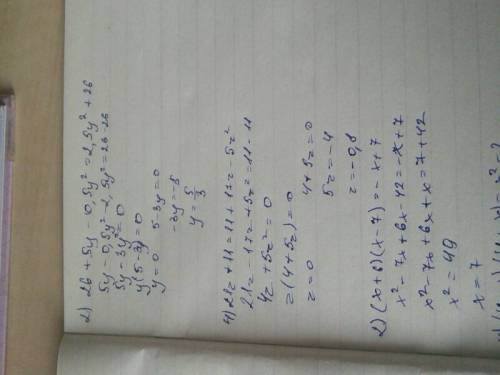 2) 26 + 5y - 0,5y² = 2,5y² + 26
5y - 0,5y² - 2,5y² = 26 - 26
5y - 3y² = 0
y(5 - 3y) = 0
y = 0 5 - 3y = 0
-3y = -5
y = 5/3
4) 21z + 11 = 11 + 17z - 5z²
21z - 17z + 5z² = 11 - 11
4z + 5z² = 0
z(4 + 5z) = 0
z = 0 4 + 5z = 0
5z = -4
z = -0,8
2) (x + 6)(x - 7) = -x + 7
x² - 7x + 6x - 42 = -x + 7
x² - 7x + 6x + x = 7 + 42
x² = 49
x = 7